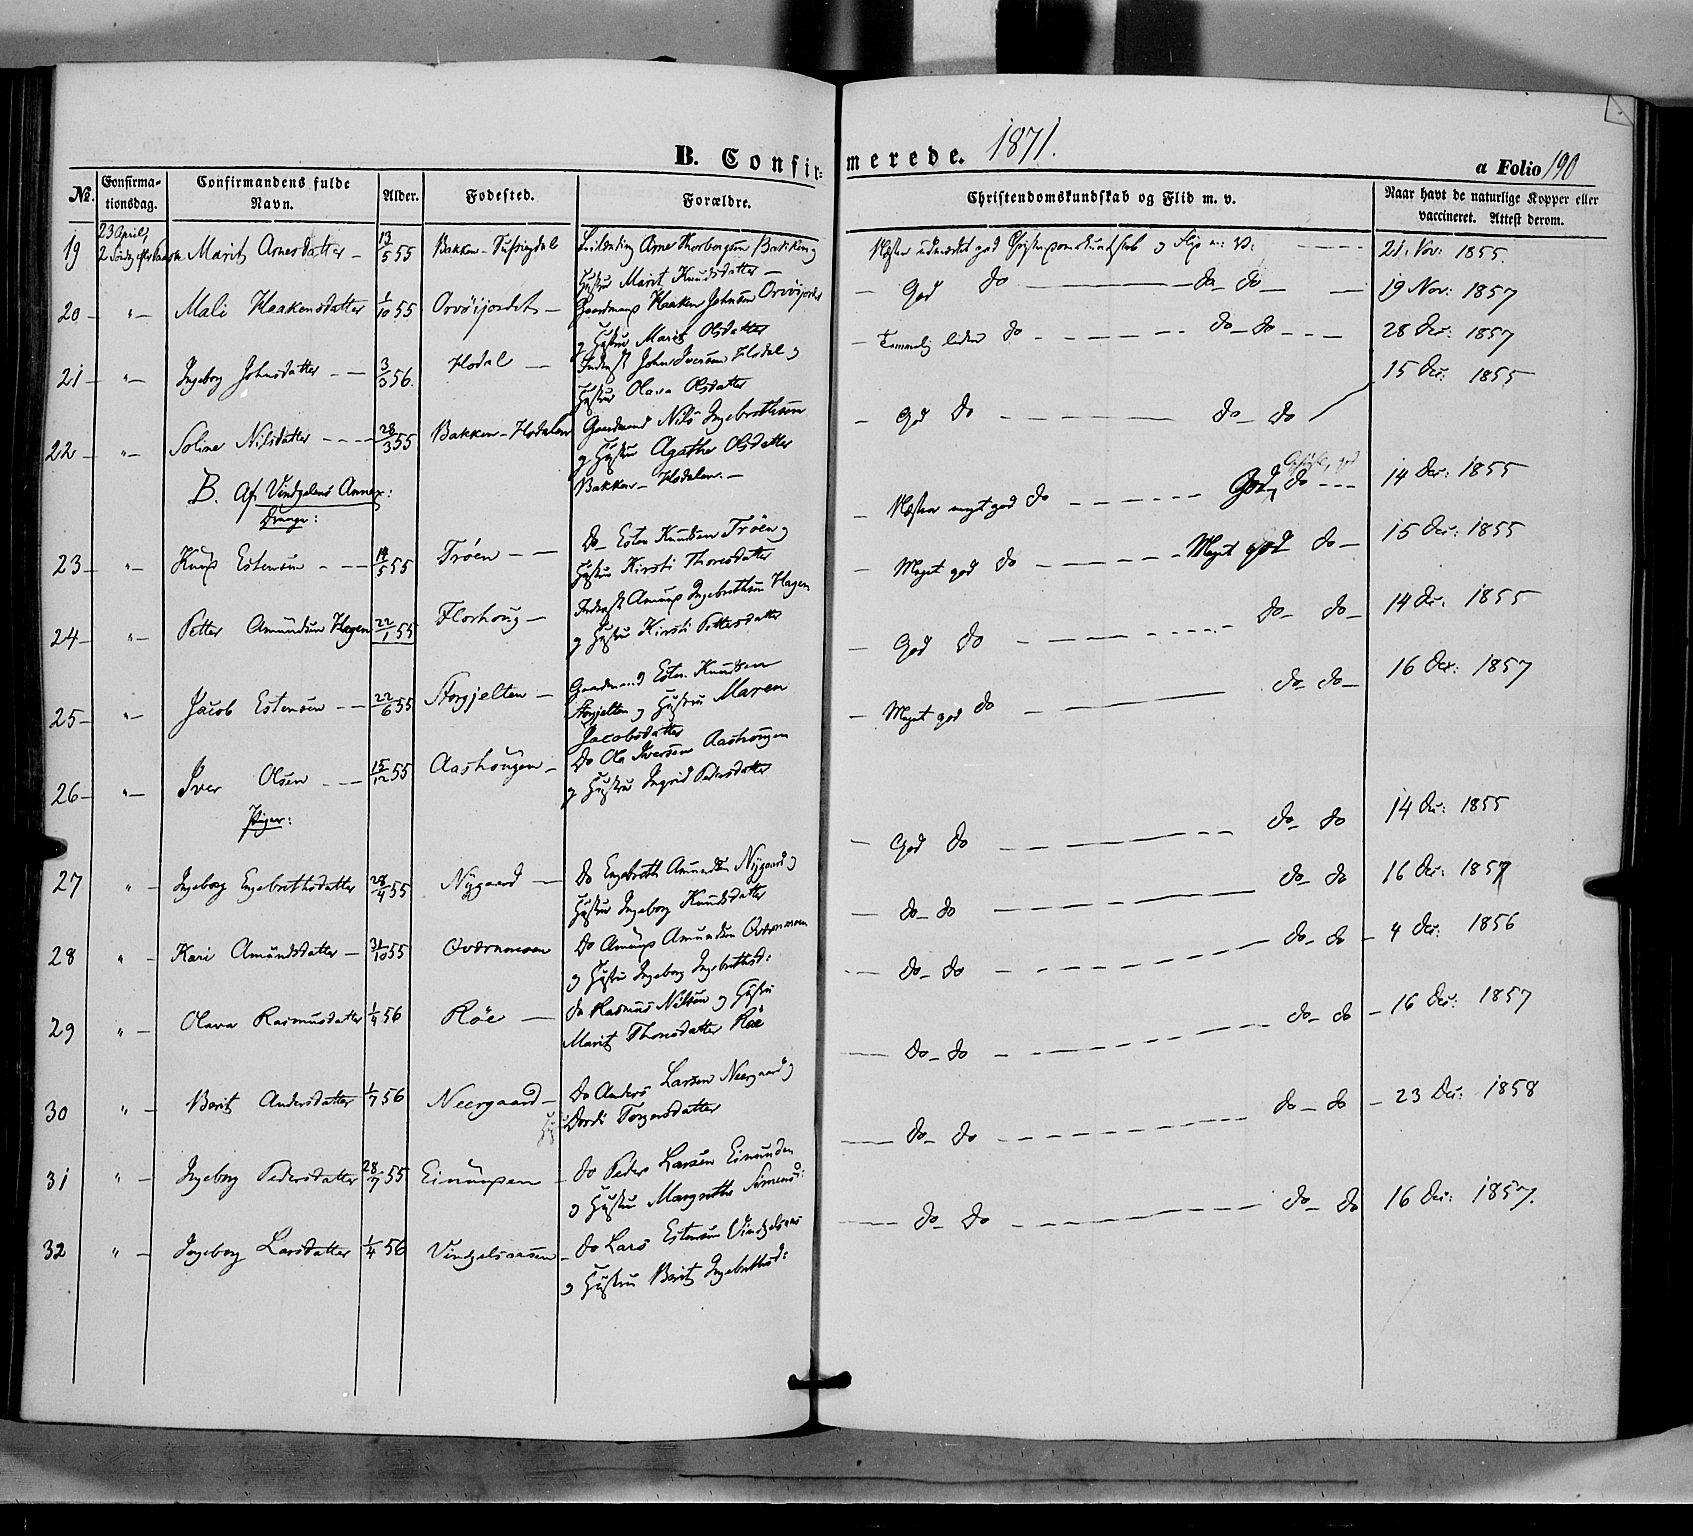 B. Confir-
merede. 1871.
a Folio 190
No.
Confirma-
tionsdag.
Confirmandens fulde
Navn.
Alder.
Fødested.
Forældre.
Christendomskundskab og Flid m. v.
Naar havt de naturlige Kopper eller
vaccineret. Attest derom.
23 April
19 2 Søndag efter Paaske Marit Arnesdatter – 13/5 55 Bakken
Arne Thorbergsen Bakken og
Hustru Marit Knudsdatter –
Næsten udmærket god Christendomskundskab og Flid m: v: – – – – 21. Nov: 1855.
20 – „ – Mali Haakensdatter 1/10 55 Orvöijordet –
Gaardmand Haaken Johnsen Orvöijordet
og Hustru Marit Olsdatter
– God do – do – do – – 19 Nov: 1857
21 – „ – Ingeborg Johnsdatter – – 3/3 56. Hodal –
Inderst John Iversen Hodal og
Hustru Olava Olsdatter
– Temmelig liden do – – – – – do – do – – – 28 Dec: 1857
22 – „ – Soline Nilsdatter – – – 28/3 55 Bakken – Hodalen
Gaardmand Nils Ingebrethsen
og Hustru Agathe Olsdatter
Bakken – Hodalen. –
– God do – – – – – do – do 15 Dec: 1855
B. Af Vindgelens Annex:
Drenge:
23 – „ – Knud Estensen – – – 14/5 55 Tröen – –
Do – Esten Knudsen Tröen og
Hustru Kirsti Thoresdatter
– Næsten meget god do – – – – – God, do – – – 14 Dec: 1855
24 – „ – Petter Amundsen Hagen 22/1 55 Florhoug –
Inderst Amund Ingebrethsen Hagen
og Hustru Kirsti Pettersdatter
– Meget god do – – – – – Meget god do – 15 Dec: 1855
25 – „ – Jacob Estensen – – 22/6 55 Storfjelten –
Gaardmand Esten Knudsen
Storfjelten og Hustru Maren
Jacobsdatter
– God do – – – – – do – do – 14 Dec. 1855
26 – „ – Iver Olsen – – 15/12 55 Aashougen –
Do Ola Iversen Aashougen
og Hustru Ingrid Pedersdatter
– Meget god do – do – do – 16 Dec: 1857
Piger:
27 „ – Ingeborg Engebrethsdatter 28/4 55 Nygaard –
Do Engebreth Amundsen Nygaard og
Hustru Ingeborg Knudsdatter
– God do – do – do 14 Dec: 1855
28 „ – Kari Amundsdatter – 31/10 55 Qværnmoen
Do Amund Amundsen Qværnmoen
og Hustru Ingeborg Ingebrethsd:
– do – do – do – do 16 Dec: 1857
29 „ – Olava Rasmusdatter 1/4 56 Röe –
do Rasmus Nilsen og Hustru
Marit Thoresdatter Röe
– do – do – – – do – do – 4 Dec: 1856
30 „ – Berit Andersdatter 1/7 56 Neergaard –
Do Anders Larsen Neergaard og
Dordi Torgersdatter
– do – do – – – do – do – 16 Dec: 1857
31 „ – Ingeborg Pedersdatter 28/7 55 Einunden
– do Peder Larsen Einunden
og Hustru Margrethe Simensd:
– do – do – – – do – do – 23 Dec: 1858
32 „ – Ingeborg Larsdatter 1/4 56 Vindgelsaasen
– do Lars Estensen Vindgelsaas
og Hustru Berit Ingebrethsd:
– do – do – – – do – do 16 Dec: 1857.